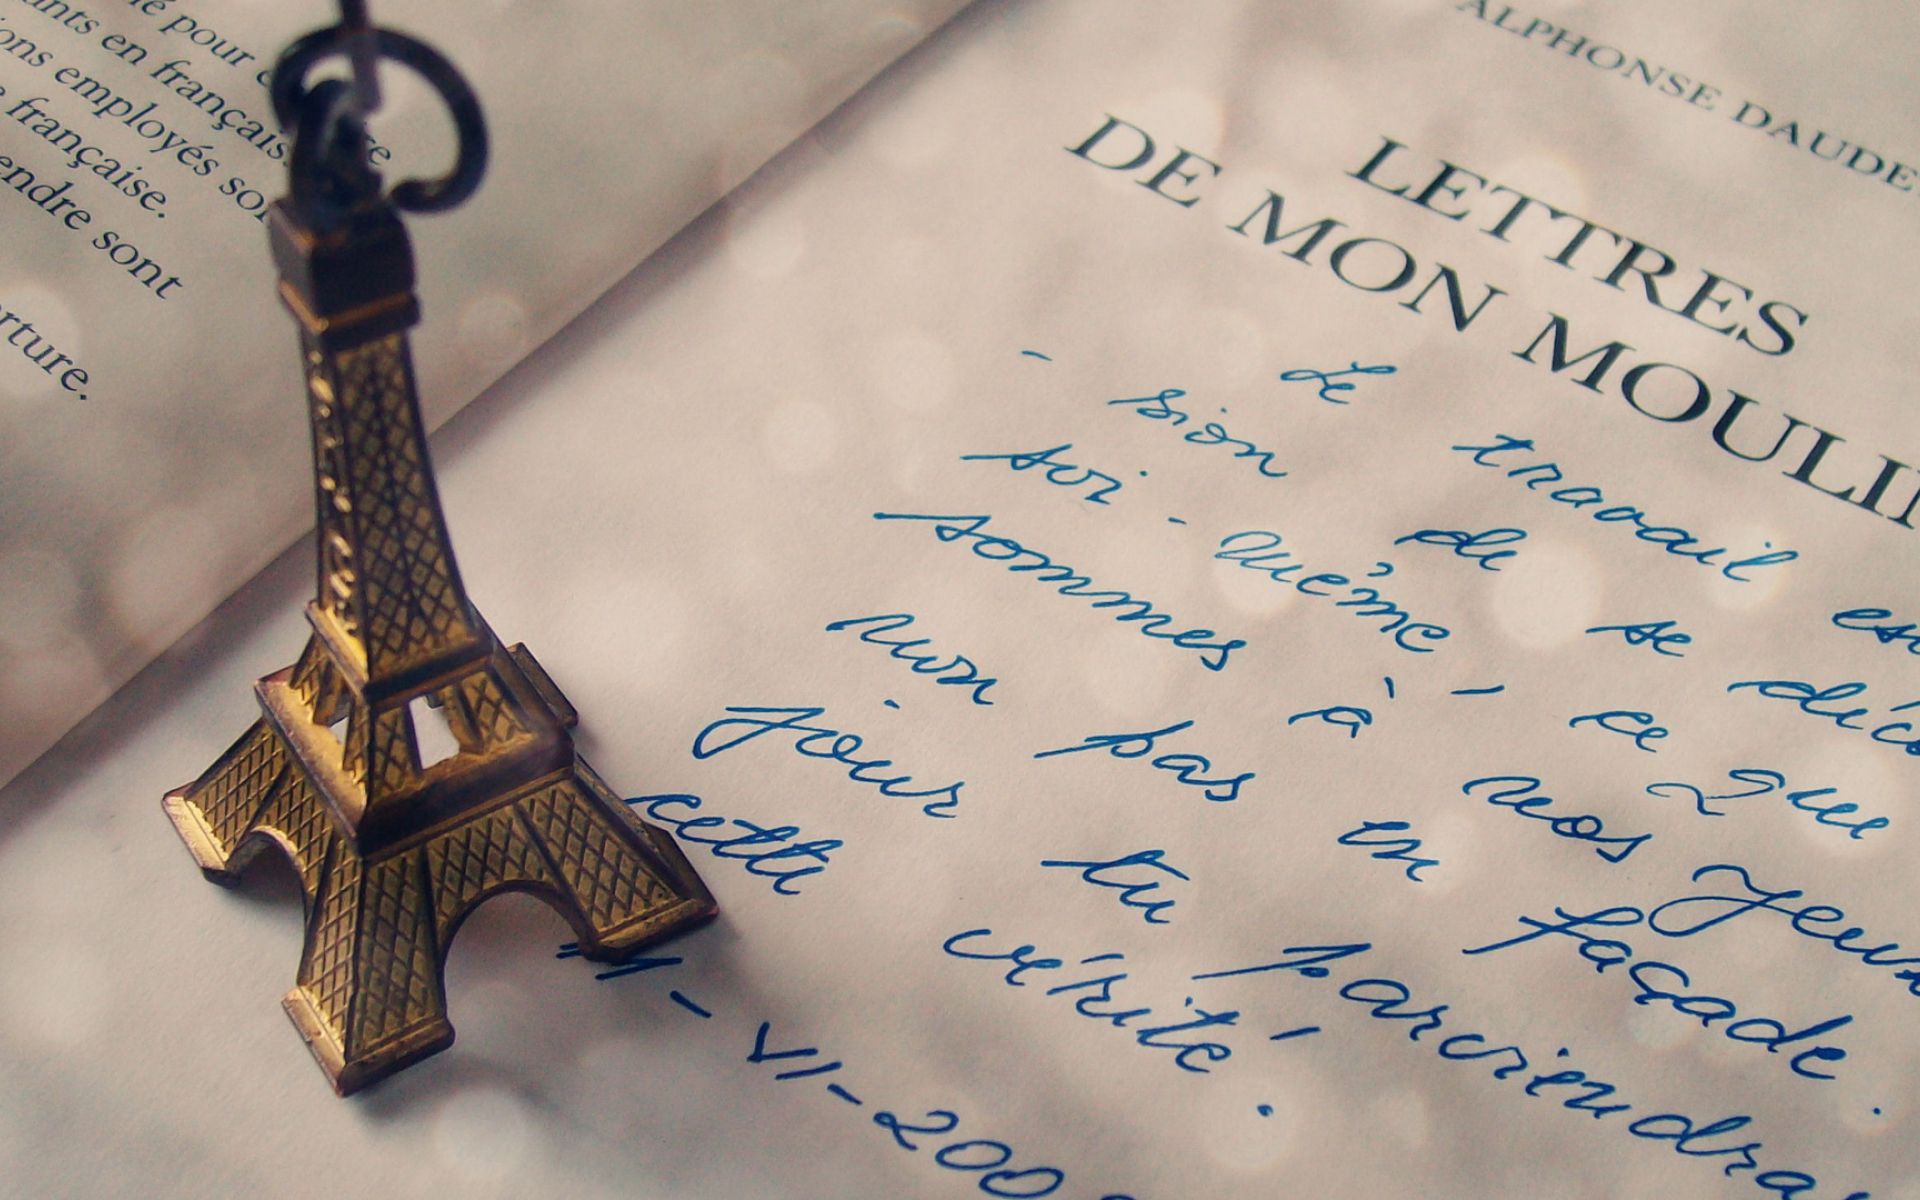 é pour
ants en français.
ons employés so
française.
endre sont
rture.
ALPHONSE DAUDE
LETTRES
DE MON MOULI
Le travail es
- sion de se déc
soi-même, ce que
sommes à nos yeux
non pas en façade.
jour tu parviendra
cette vérité.
11-VI-200